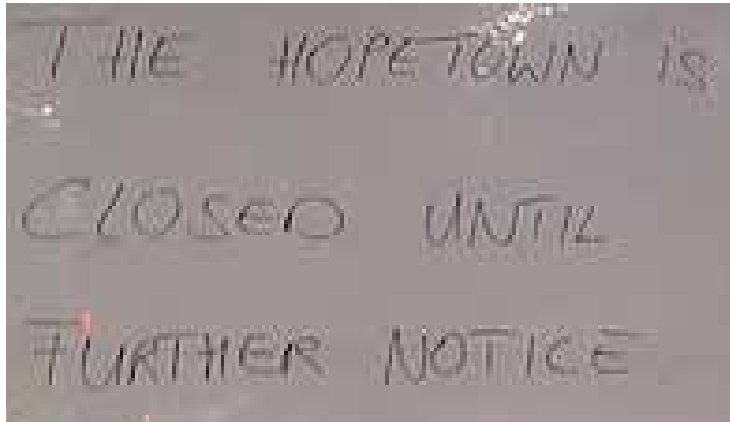 THE HOPETOWN IS
CLOSED UNTIL
FURTHER NOTICE